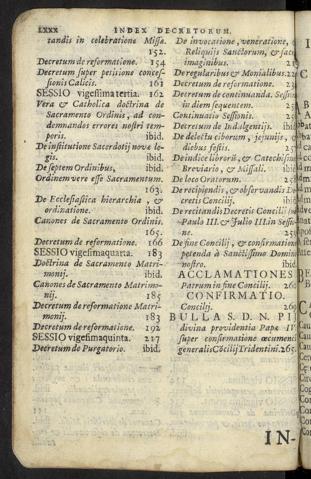 LXXX INDEX DECRETORUM.
tandis in celebratione Missæ.
152.
Decretum de reformatione. 154
Decretum super petitione concessionis Calicis. 161
SESSIO vigesimatertia. 162
Vera & Catholica doctrina de
Sacramento Ordinis, ad condemnandos errores nostri temporis. ibid.
De institutione Sacerdotij novæ legis. ibid.
De septem Ordinibus, ibid.
Ordinem vere esse Sacramentum.
163.
De Ecclesiastica hierarchia, &
ordinatione. ibid.
Canones de Sacramento Ordinis.
165.
Decretum de reformatione. 166
SESSIO vigesimaquarta. 183
Doctrina de Sacramento Matrimonij. ibid.
Canones de Sacramento Matrimonij. 185
Decretum de reformatione Matrimonij. 183
Decretum de reformatione. 192
SESSIO vigesimaquinta. 217
Decretum de Purgatorio. ibid.
De invocatione, veneratione, &
Reliquijs Sanctorum, & sacris
imaginibus.
De regularibus & Monialibus.
Decretum de reformatione.
Decretum de continuanda. Sessione
in diem sequentem.
Continuatio Sessionis.
Decretum de Indulgentijs. ibid.
De delectu ciborum, jejunijs,
diebus festis.
De indice librorū, & Catechismo
Breviario, & Missali. ibid.
De loco Oratorum.
De recipiendis, & observandis Decretis Concilij.
De recitandis Decretis Concilij
Paulo III. & Julio III. in Sessione.
De fine Concilij, & confirmatione
petenda à Sanctissimo Domino
nostro. ibid
ACCLAMATIONES
Patrum in fine Concilij.
CONFIRMATIO.
Concilij.
BULLA S. D. N. PII
divina providentia Papæ IV
super confirmatione œcumenici
generalis Cōcilij Tridentini.
IN-